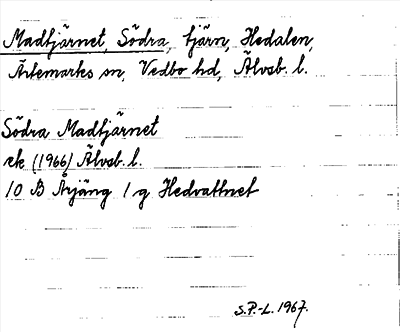 Madtjärnet, Södra, tjärn, Hedalen,
Ärtemarks sn, Vedbo hd, Älvsb. l.
Södra Madtjärnet
ek (1966) Älvsb. l.
10 B Årjäng 1 g Hedvattnet
S.P.-L. 1967.